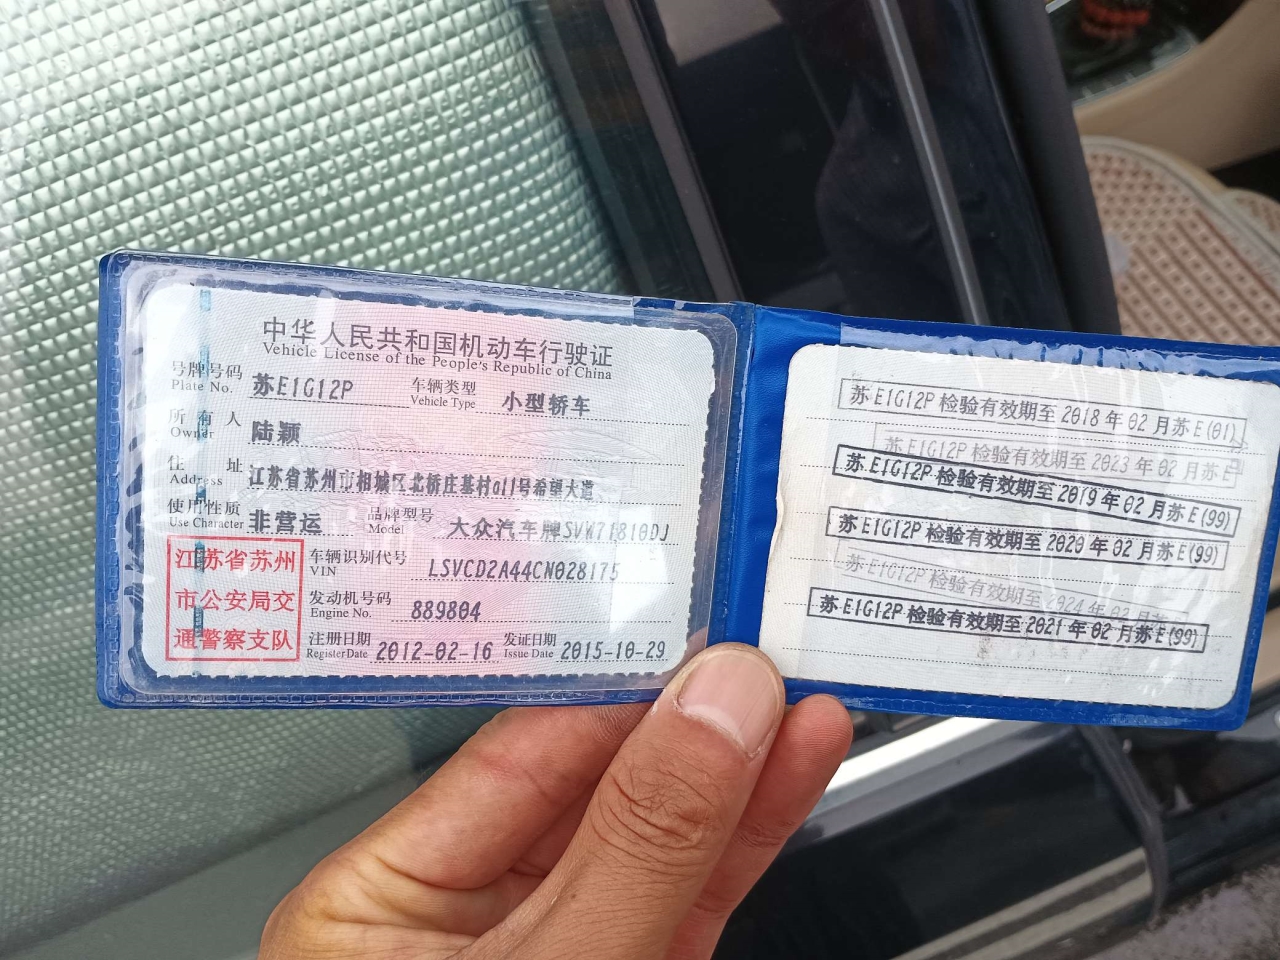 中华人民共和国机动车行驶证
Vehicle License of the People's Republic of China
号牌号码 苏E1G12P 车辆类型 小型轿车
Plate No. Vehicle Type
所有人 陆颖
Owner
住址 江苏省苏州市相城区北桥庄基村011号希望大道
Address
使用性质 非营运 品牌型号 大众汽车牌SVW71810DJ
Use Character Model
江苏省苏州
市公安局交
通警察支队
车辆识别代号 LSVCD2A44CN028175
VIN
发动机号码 889804
Engine No.
注册日期 2012-02-16 发证日期 2015-10-29
Register Date Issue Date
苏E1G12P 检验有效期至 2018 年 02 月苏E(01)
苏E1G12P 检验有效期至 2023 年 02 月苏E
苏E1G12P 检验有效期至 2019 年 02 月苏E(99)
苏E1G12P 检验有效期至 2020 年 02 月苏E(99)
苏E1G12P 检验有效期至 2024 年 02 月
苏E1G12P 检验有效期至 2021 年 02 月苏E(99)